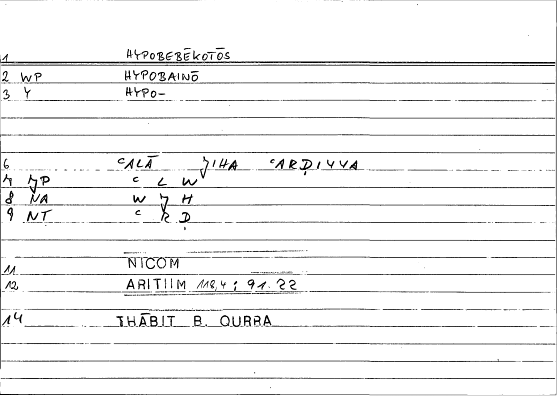 1 HYPOBEBĒKOTŌS
2 WP HYPOBAINŌ
3 Y HYPO-
6 ᶜALĀ ǦIHA ᶜARḌIYYA
7 ǦP ᶜ L W
8 NA W Ǧ H
9 NT ᶜ R Ḍ
11 NICOM
12 ARITIIM 118,4 ; 91.22
14 THĀBIT B. QURRA